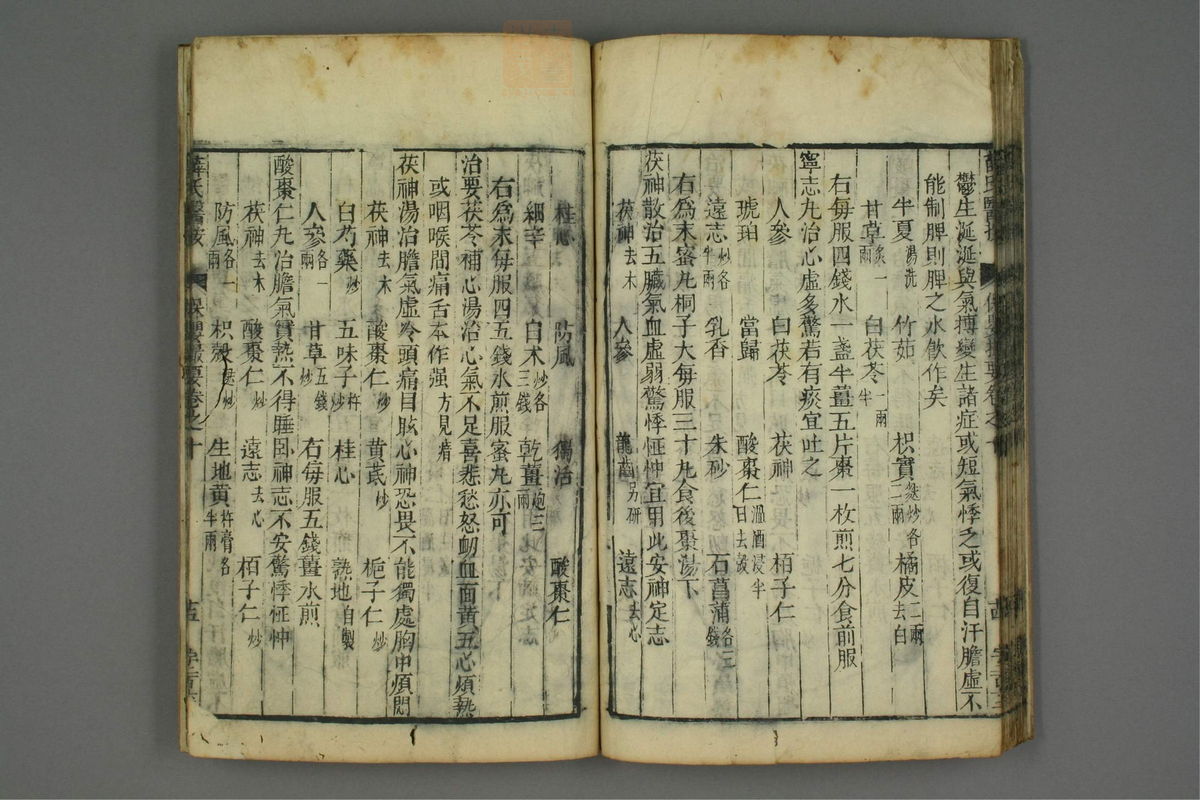 鬱生涎涎與氣搏變生諸症或短氣悸乏或復自汗膽虛不
能制脾則脾之水飲作矣
半夏湯洗 竹茹 枳實麩炒各二兩 橘皮二兩去白
甘草炙一兩 白茯苓一兩半
右每服四錢水一盞半薑五片棗一枚煎七分食前服
寧志丸治心虛多驚若有痰宜吐之
人參 白茯苓 茯神 栢子仁
琥珀 當歸 酸棗仁溫酒浸半日去殼
遠志炒各半兩 乳香 朱砂 石菖蒲各三錢
右爲末蜜丸桐子大每服三十丸食後棗湯下
茯神散治五臟氣血虛弱驚悸怔忡宜用此安神定志
茯神去木 人參 龍齒另研 遠志去心
桂心 防風 獨活 酸棗仁
細辛 白术炒各三錢 乾薑炮三兩
右爲末每服四五錢水煎服蜜丸亦可
治要茯苓補心湯治心氣不足喜悲愁怒衂血面黃五心煩熱
或咽喉間痛舌本作强方見瘄
茯神湯治膽氣虛冷頭痛目眩心神恐畏不能獨處胸中煩悶
茯神去木 酸棗仁炒 黃芪炒 梔子仁炒
白芍藥炒 五味子杵炒 桂心 熟地自製
人參各一兩 甘草五錢炒 右每服五錢薑水煎
酸棗仁丸治膽氣實熱不得睡臥神志不安驚悸怔忡
茯神去木 酸棗仁炒 遠志去心 栢子仁炒
防風各一兩 枳殼麩炒 生地黃杵膏各半兩
薛氏醫按 保嬰撮要卷之十